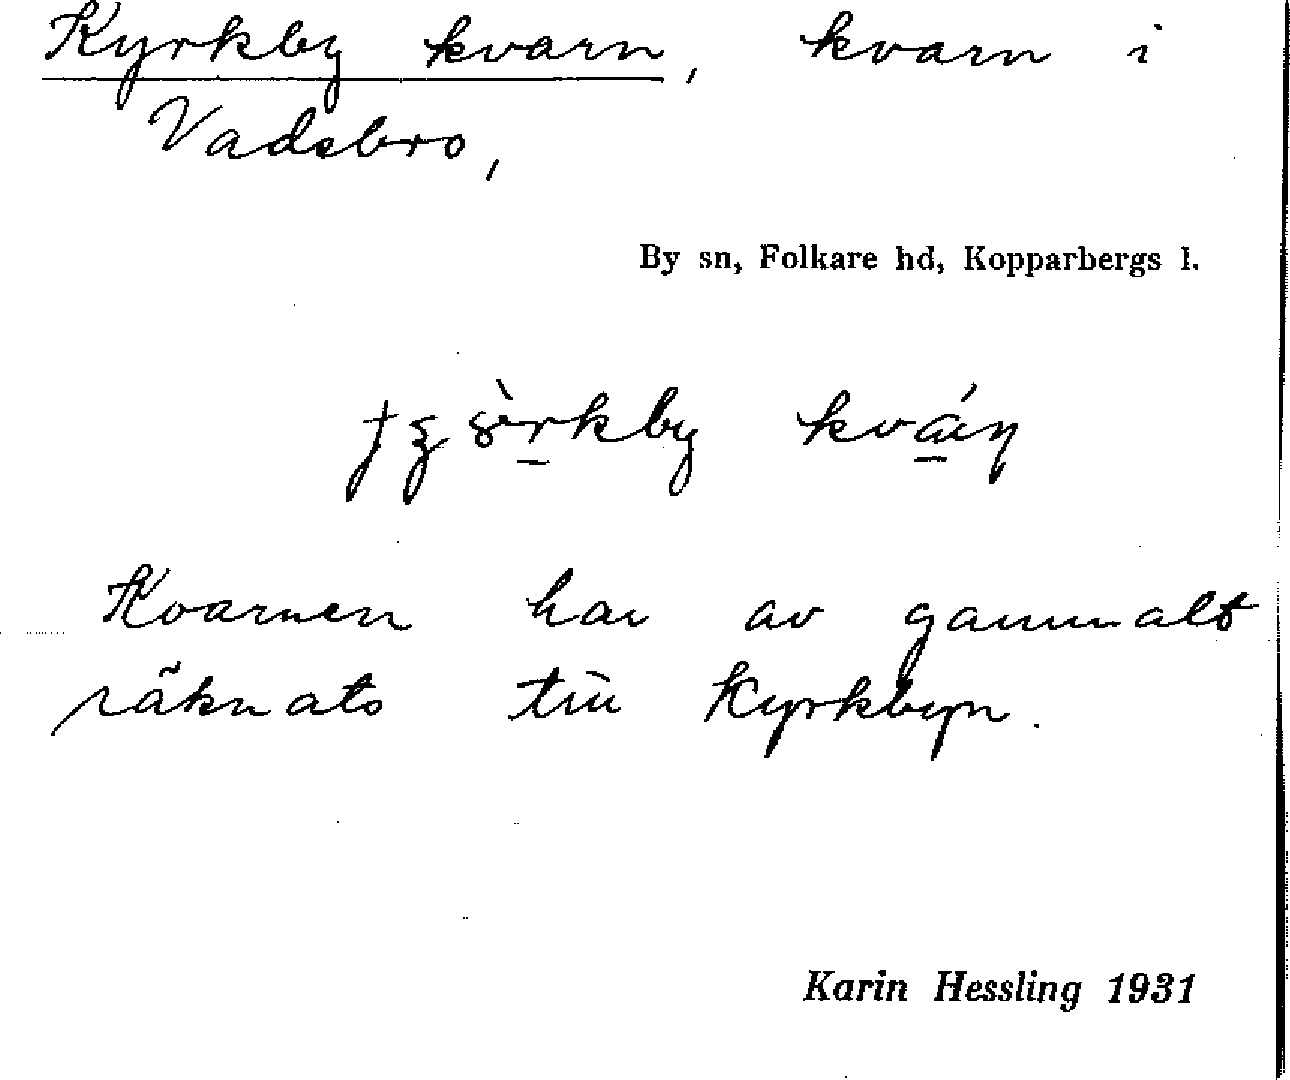 Kyrkby kvarn, kvarn i
Vadsbro,
By sn, Folkare hd, Kopparbergs l.
kván
Kvarnen har av gammalt
räknats till Kyrkbyn.
Karin Hessling 1931